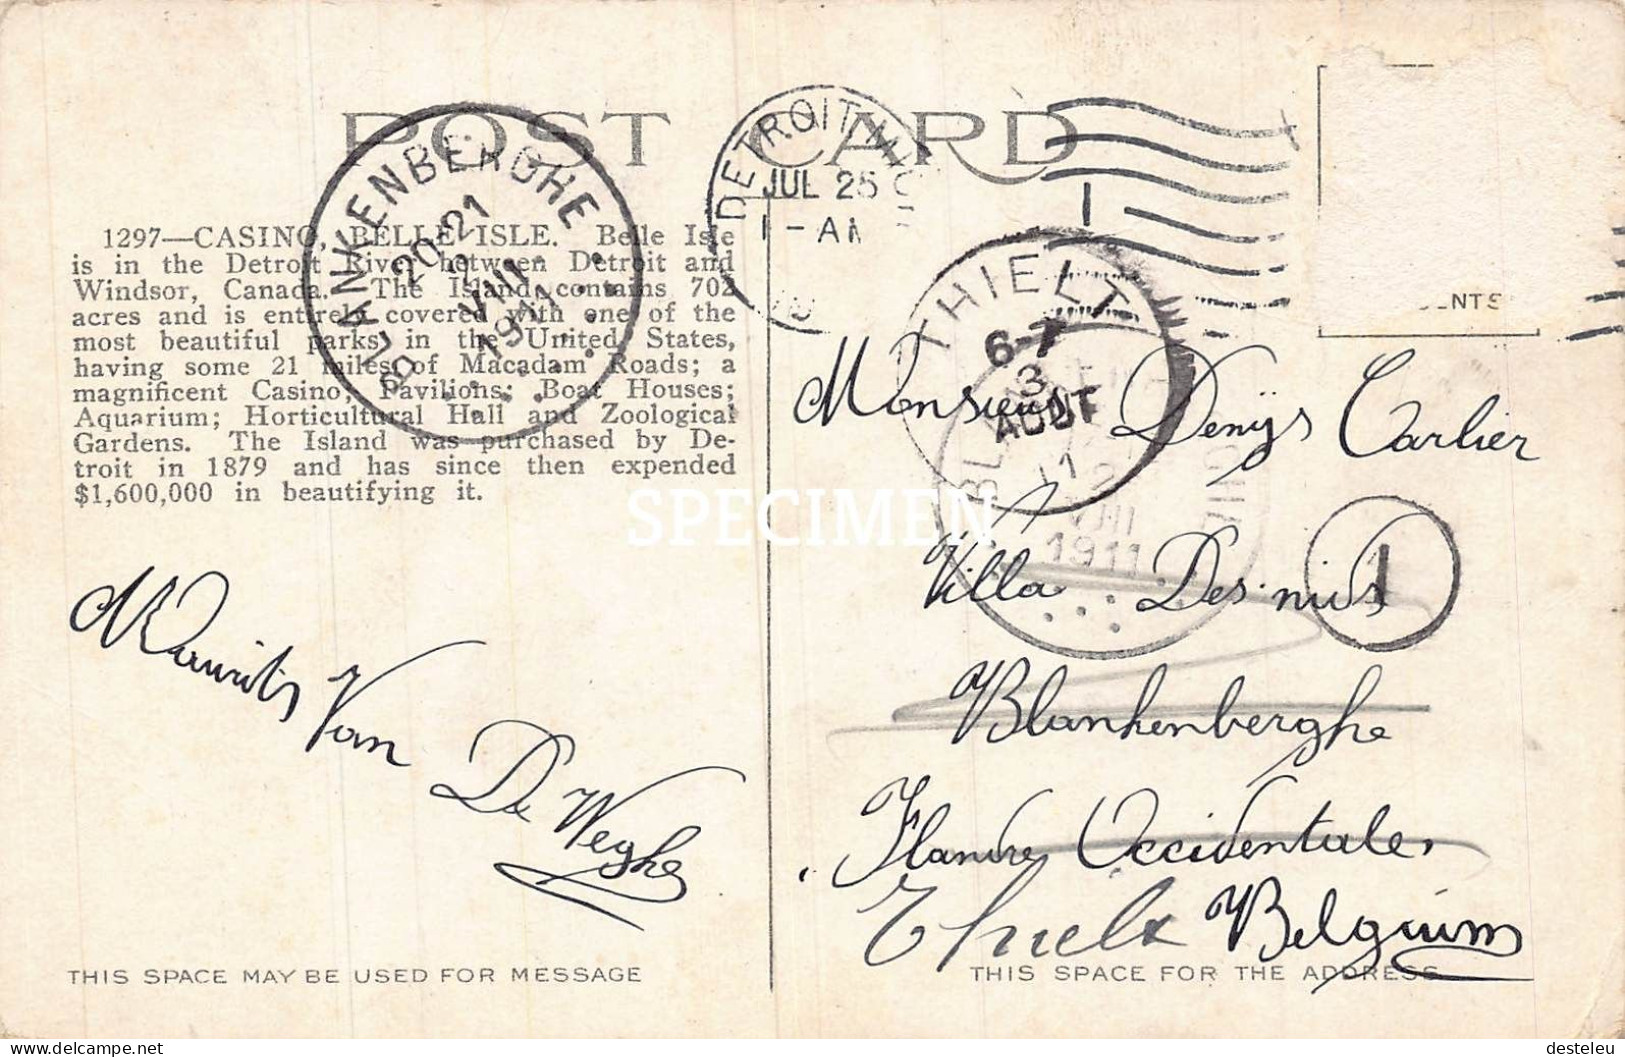 POST CARD
1297—CASINO, BELLE ISLE. Belle Isle
is in the Detroit River between Detroit and
Windsor, Canada. The Island contains 702
acres and is entirely covered with one of the
most beautiful parks in the United States,
having some 21 miles of Macadam Roads; a
magnificent Casino; Pavilions; Boat Houses;
Aquarium; Horticultural Hall and Zoological
Gardens. The Island was purchased by De-
troit in 1879 and has since then expended
$1,600,000 in beautifying it.
BLANKENBERGHE
20-21
VIII
1911
DETROIT, MICH
JUL 25
1-AM
1
THIELT
6-7
3
AOUT
11
VIII
1911
1
SPECIMEN
Maurits Van
De Weghe
Monsieur Denijs Carlier
Villa Des nids
Blankenberghe
Flandre Occidentale
Thielt Belgium
THIS SPACE MAY BE USED FOR MESSAGE
THIS SPACE FOR THE ADDRESS
delcampe.net
desteleu